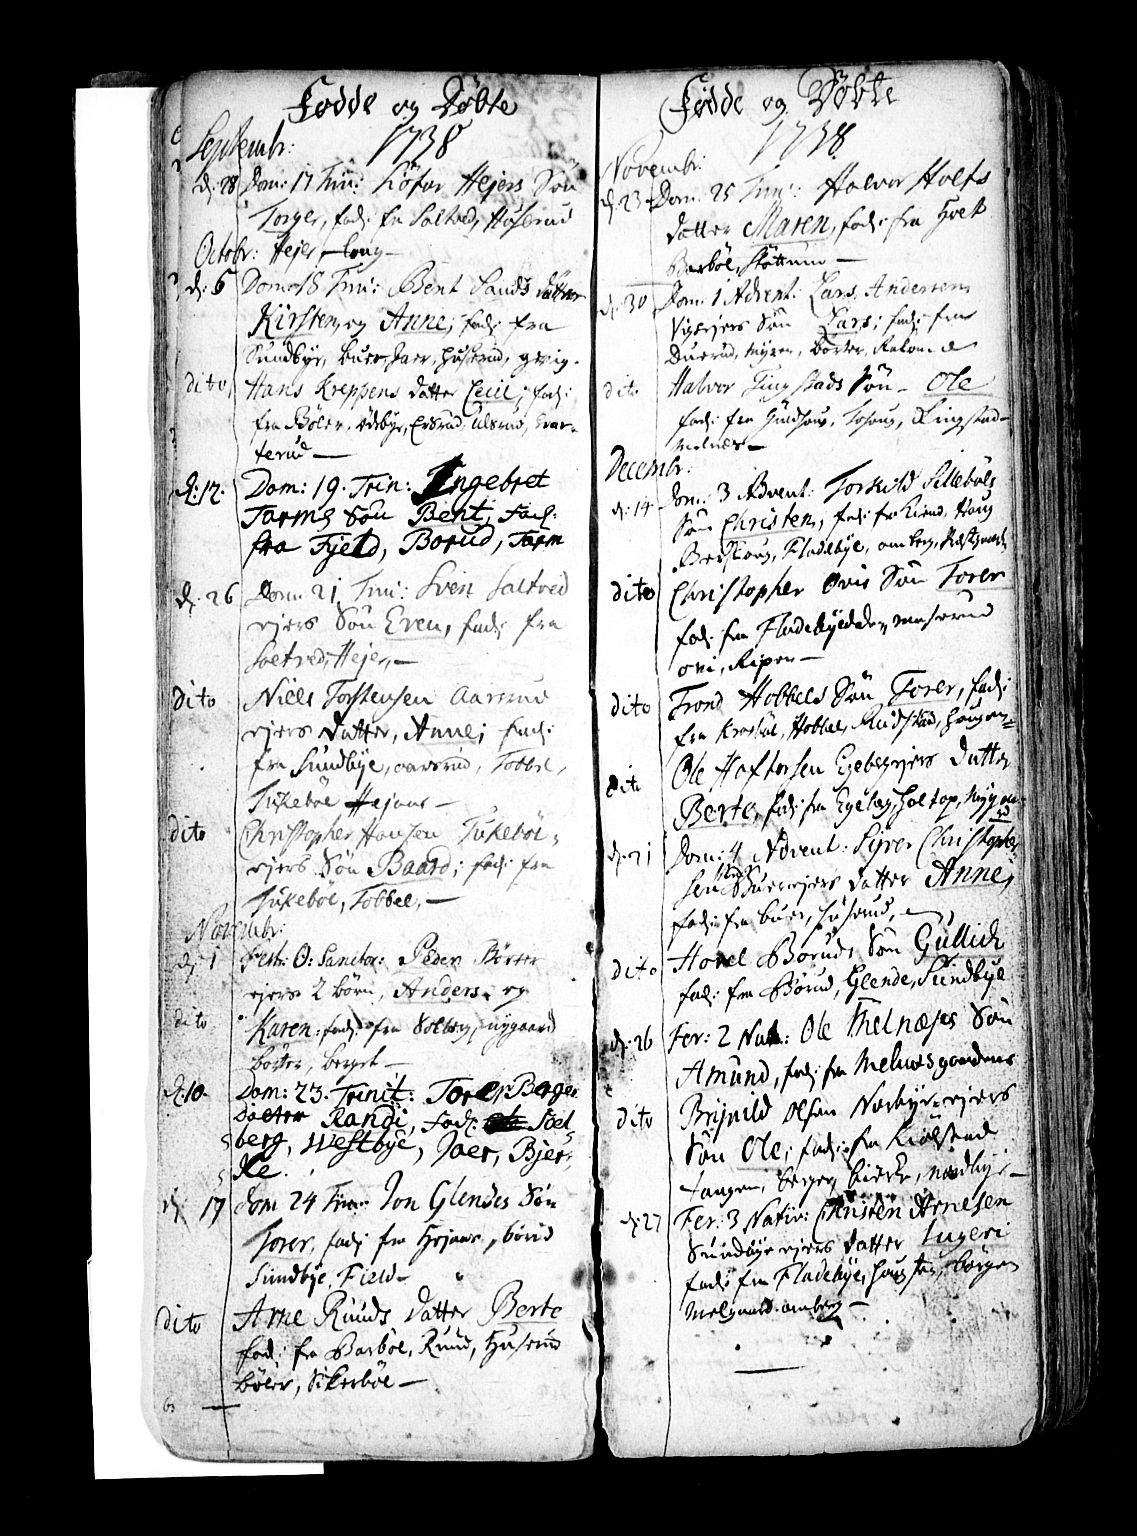 Fødde og Døbte
1738
Septembr:
d. 28 Dom: 17 Trin: Hejers Søn
Torger, fad: fra Saltved, Huserud
Octobr: Hejer
d: 5 Dom: 18 Trin: Bent Sands datter
Kirsten, og Anne; fad: fra
Sundbye, buer, Jaer, Huserud,
dito Hans Kreppens datter Cecil; fad:
fra Bøler, Ødebye, Ulsrud,
terud —
d: 12: Dom: 19. Trin: Ingebret
Tarms Søn Bent, fad:
fra Fjeld, Borud, Tarm
d: 26 Dom: 21 Trin: Sven Saltved
ejers Søn Even, fad: fra
Saltved, Hejer, —
dito Niels Torstensen Aarsrud
ejers datter, Anne; fad:
fra Sundbye, aarsrud, Tobbel,
Tukebøl Hejaas —
dito Christopher Hansen Tukebøl
ejers Søn Baard; fad: fra
Tukebøl, Tobbel, —
Novembr:
d: 1 Festo O: Sanctor: Peder Børter
ejers 2 børn, Anders og
dito Karen: fad: fra Solberg, nygaard
børter, berget —
d. 10. Dom: 23. Trinit: Torer Berger
datter Randi, fad: Soel
berg, Westbye, Jaer, Bjer
ke.
d: 17 Dom 24 Trin Jon Glendes Søn
Torer, fad: fra Hejaas, børud
Sundbye, Field —
dito Arne Ruuds datter Berte
fad: fra Barbøl, Ruud, Huserud
bøler, Sikerbøl —
Fødde og Døbte
1738.
Novembr:
d. 23 Dom. 25 Trin: Halvor Holts
datter Maren, fad: fra Holt
Barbøl, Støttum —
d: 30 Dom: 1 Advent: Lars Andersen
ejers Søn Lars; fad: fra
Duerud, myrer, børter,
dito Halvor Tingstads Søn — Ole
fad: fra Tosaug, Ringstad
Melnæs —
Decembr:
d: 14 Dom: 3 Advent: Torkild Sillebøls
Søn Christen, fad: fra Haug
Fladebye, omberg,
dito Christopher Ovis Søn Torer
fad: fra Fladebye maserud
ovi, Ripen —
dito Trond Hobbels Søn Torer, fad:
fra Krosbøl, Hobbel, Rudstad,
dito Ole Haftorsen Egebergejers datter
Berte, fad: fra Egeberg, holstop,
d: 21 Dom: 4 Advent: Syver Christopher
sen Buerejers datter Anne,
fad: fra buer, huserud, —
dito Hovel Boruds Søn Gullich
fad: fra Børud, Glende, Sundbye
d: 26 Fer: 2 Nat: Ole Melnæses Søn
Amund, fad: fra
dito Brynild Olsen Nordbye ejers
Søn Ole; fad: fra
tangen, berger, birke, nordbye —
d: 27 Fer: 3 Nativ: Christen Arnesen
Sundbye ejers datter Ingeri
fad: fra Fladebye, børger
omberg —